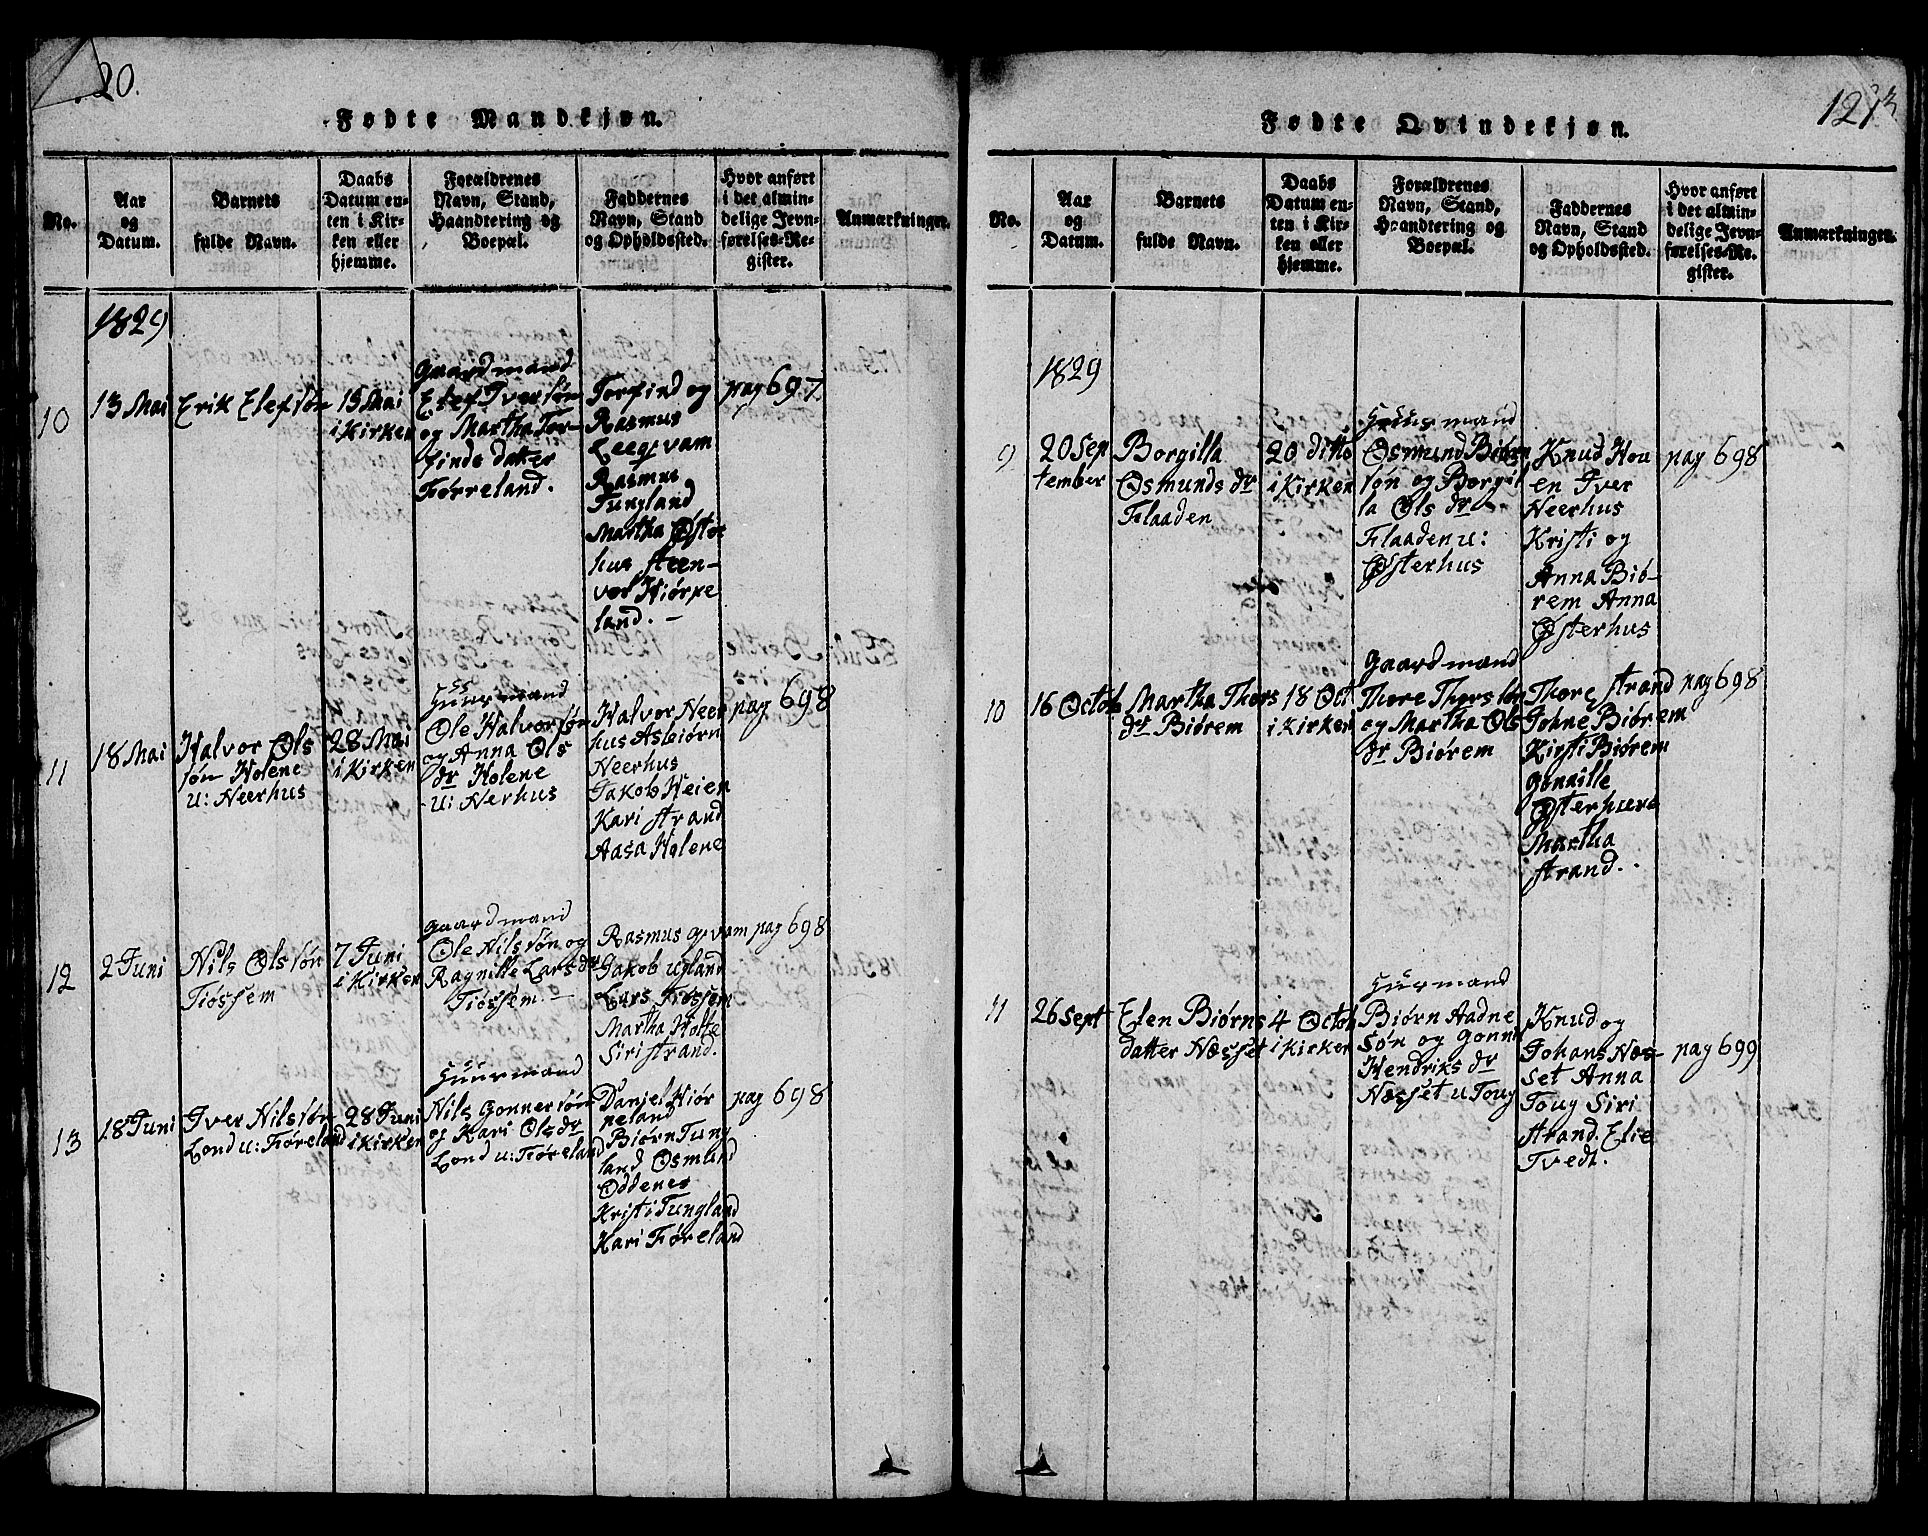 20.
Fødte Mandkjøn.
No.
Aar
og
Datum.
Barnets
fulde Navn.
Daabs
Datum en-
ten i Kir-
ken eller
hjemme.
Forældrenes
Navn, Stand,
Haandtering og
Boepæl.
Faddernes
Navn, Stand
og Opholdssted.
Hvor anført
i det almin-
delige Jevn-
førelses-Re-
gister.
Anmærkninger.
1829
10
13 Mai
Erik Elefsøn
15 Mai
i Kirken
Gaardmand
Elef Iversøn
og Martha Tor-
finds datter
Førreland.
Torfind og
Rasmus
Leeqvam
Rasmus
Tungland
Martha Øster
hus Steen-
vor Hiørpe
land. -
pag 697
11
18 Mai
Halvor Ols
søn Holene
u: Neerhus
28 Mai
i Kirken
Huusmand
Ole Halvorsøn
og Anna Ols
dr Holene
u: Nerhus
Halvor Neer
hus Asbiørn
Neerhus
Jakob Heien
Kari Strand
Aasa Holene
pag 698
12
2 Juni
Nils Olssøn
Tiøssem
7 Juni
i Kirken
Gaardmand
Ole Nilssøn og
Ragnille Lars dr
Tiøssem. -
Rasmus qvam
Jakob Ugland
Lars Tiøssem
Martha Holte
Siri Strand.
pag 698
13
18 Juni
Iver Nilssøn
Lond u: Føreland
28 Juni
i Kirken
Huusmand
Nils Gonnersøn
og Kari Ols dr
Lond u: Føreland
Daniel Hiør
peland
Biørn Tung
land Osmund
Oddenes
Kristi Tungland
Kari Føreland
pag 698
121
Fødte Qvindekjøn.
No.
Aar
og
Datum.
Barnets
fulde Navn.
Daabs
Datum en-
ten i Kir-
ken eller
hjemme.
Forældrenes
Navn, Stand,
Haandtering og
Boepæl.
Faddernes
Navn, Stand
og Opholdssted.
Hvor anført
i det almin-
delige Jevn-
førelses-Re-
gister.
Anmærkninger.
1829
9
20 Sep
tember
Borgilla
Osmunds dr
Flaaden
20 ditto
i Kirken
Huusmand
Osmund Biørn
søn og Borgil
la Ols dr
Flaaden u:
Østerhus
Knud Hou
en Iver
Neerhus
Kristi og
Anna Biö-
rem Anna
Østerhus
pag 698
10
16 Octob
Martha Thors
dr Biørem
18 Oct
i Kirken
Gaardmand
Thore Thorssøn
og Martha Ols
dr Biørem
Thore Strand
Johne Biørem
Kirsti Biørem
Gunille
Østerhus
Martha
Strand.
pag 698
11
26 Sept
Elen Biørns
datter Næsset
4 Octob
i Kirken
Huusmand
Biørn Aadne
søn og Gonni
Hendriks dr
Næsset u Toug
Knud og
Johans Næs-
set Anna
Toug Siri
Strand. Elie
Tvedt.
pag 699